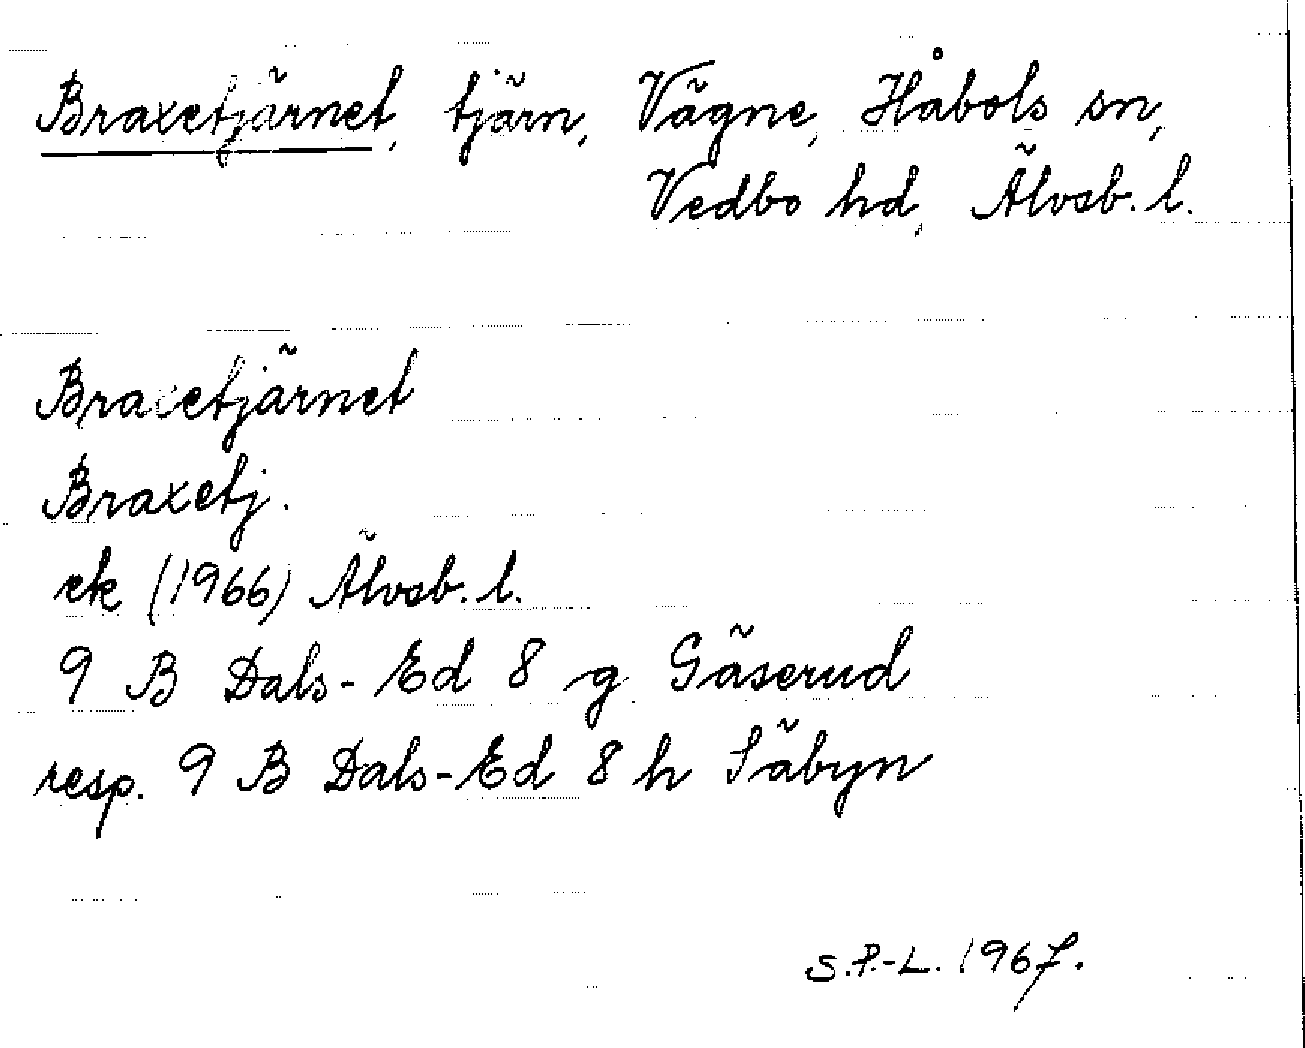 Braxetjärnet, tjärn, Vägne, Håbols sn,
Vedbo hd, Älvsb. l.
Braxetjärnet
Braxetj.
ek (1966) Älvsb. l.
9 B Dals-Ed 8 g Gäserud
resp. 9 B Dals-Ed 8 h Säbyn
S.P.-L. 1967.